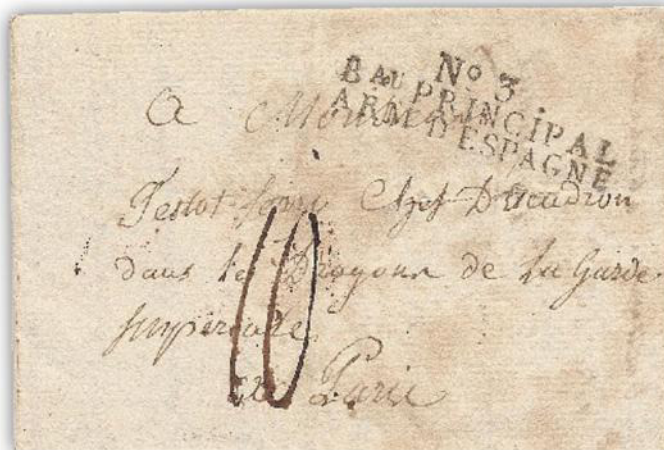 No 3.
Bau PRINCIPAL
ARM. D'ESPAGNE
a Monsieur
Testot ferri Chef Descadron
dans les Dragons de la Garde
Imperiale
10
Paris